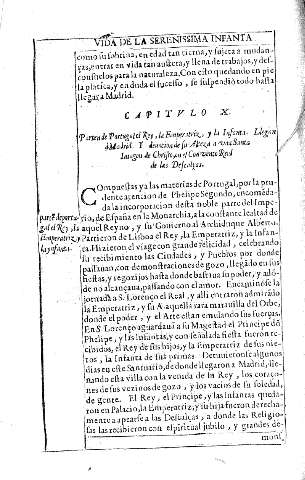 VIDA DE LA SERENISSIMA INFANTA
como su sobrina, en edad tan tierna, y sujeta à mudan-
ças, entrar en vida tan austera, y llena de trabajos, y des-
consuelos para la naturaleza. Con esto quedando en pie
la platica, y en duda el sucesso, se suspendiò todo hasta
llegar a Madrid.
CAPITVLO X.
Parten de Portugal el Rey, la Emperatriz, y la Infanta. Llegan
à Madrid. Y devocion de su Alteza a una Santa
Imagen de Christo, en el Convento Real
de las Descalças.
Compuestas ya las materias de Portugal, por la pru-
dente atencion de Phelipe Segundo, encomēda-
da la incorporacion desta noble parte del Impe-
rio, de España en la Monarchia, a la constante lealtad de
aquel Reyno, y su Govierno al Archiduque Alberto.
Partieron de Lisboa el Rey, la Emperatriz, y la Infan-
ta. Hizieron el viage con grande felicidad, celebrando
su recibimiento las Ciudades, y Pueblos por donde
passauan, con demonstraciones de gozo, llegādo en sus
fiestas, y regozijos hasta donde bastaua su poder, y adō-
de no alcançaua, passando con el amor. Encaminòse la
jornada a S. Lorenço el Real, y alli entraron admirādo
la Emperatriz, y su A. aquella rara marauilla del Orbe,
donde el poder, y el Arte estan emulando sus fuerças.
En S. Lorenço aguardaua a su Magestad el Principe dō
Phelipe, y las Infantas, y con señalada fiesta fueron re-
cibidos, el Rey de sus hijos, y la Emperatriz de sus nie-
tos, la Infanta de sus primas. Detuuieronse algunos
dias en este Santuario, de donde llegaron a Madrid, lle-
nando esta villa con la venida de su Rey, los coraço-
nes de sus vezinos de gozo, y los vacios de su soledad,
de gente. El Rey, el Principe, y las Infantas queda-
ron en Palacio, la Emperatriz, y su hija fueron derecha-
mente a apearse a las Descalças, a donde las Religio-
sas las recibieron con espiritual jubilo, y grandes de-
mons-
parten de portu-
gal el Rey, la
Emperatriz,
y la Infanta.